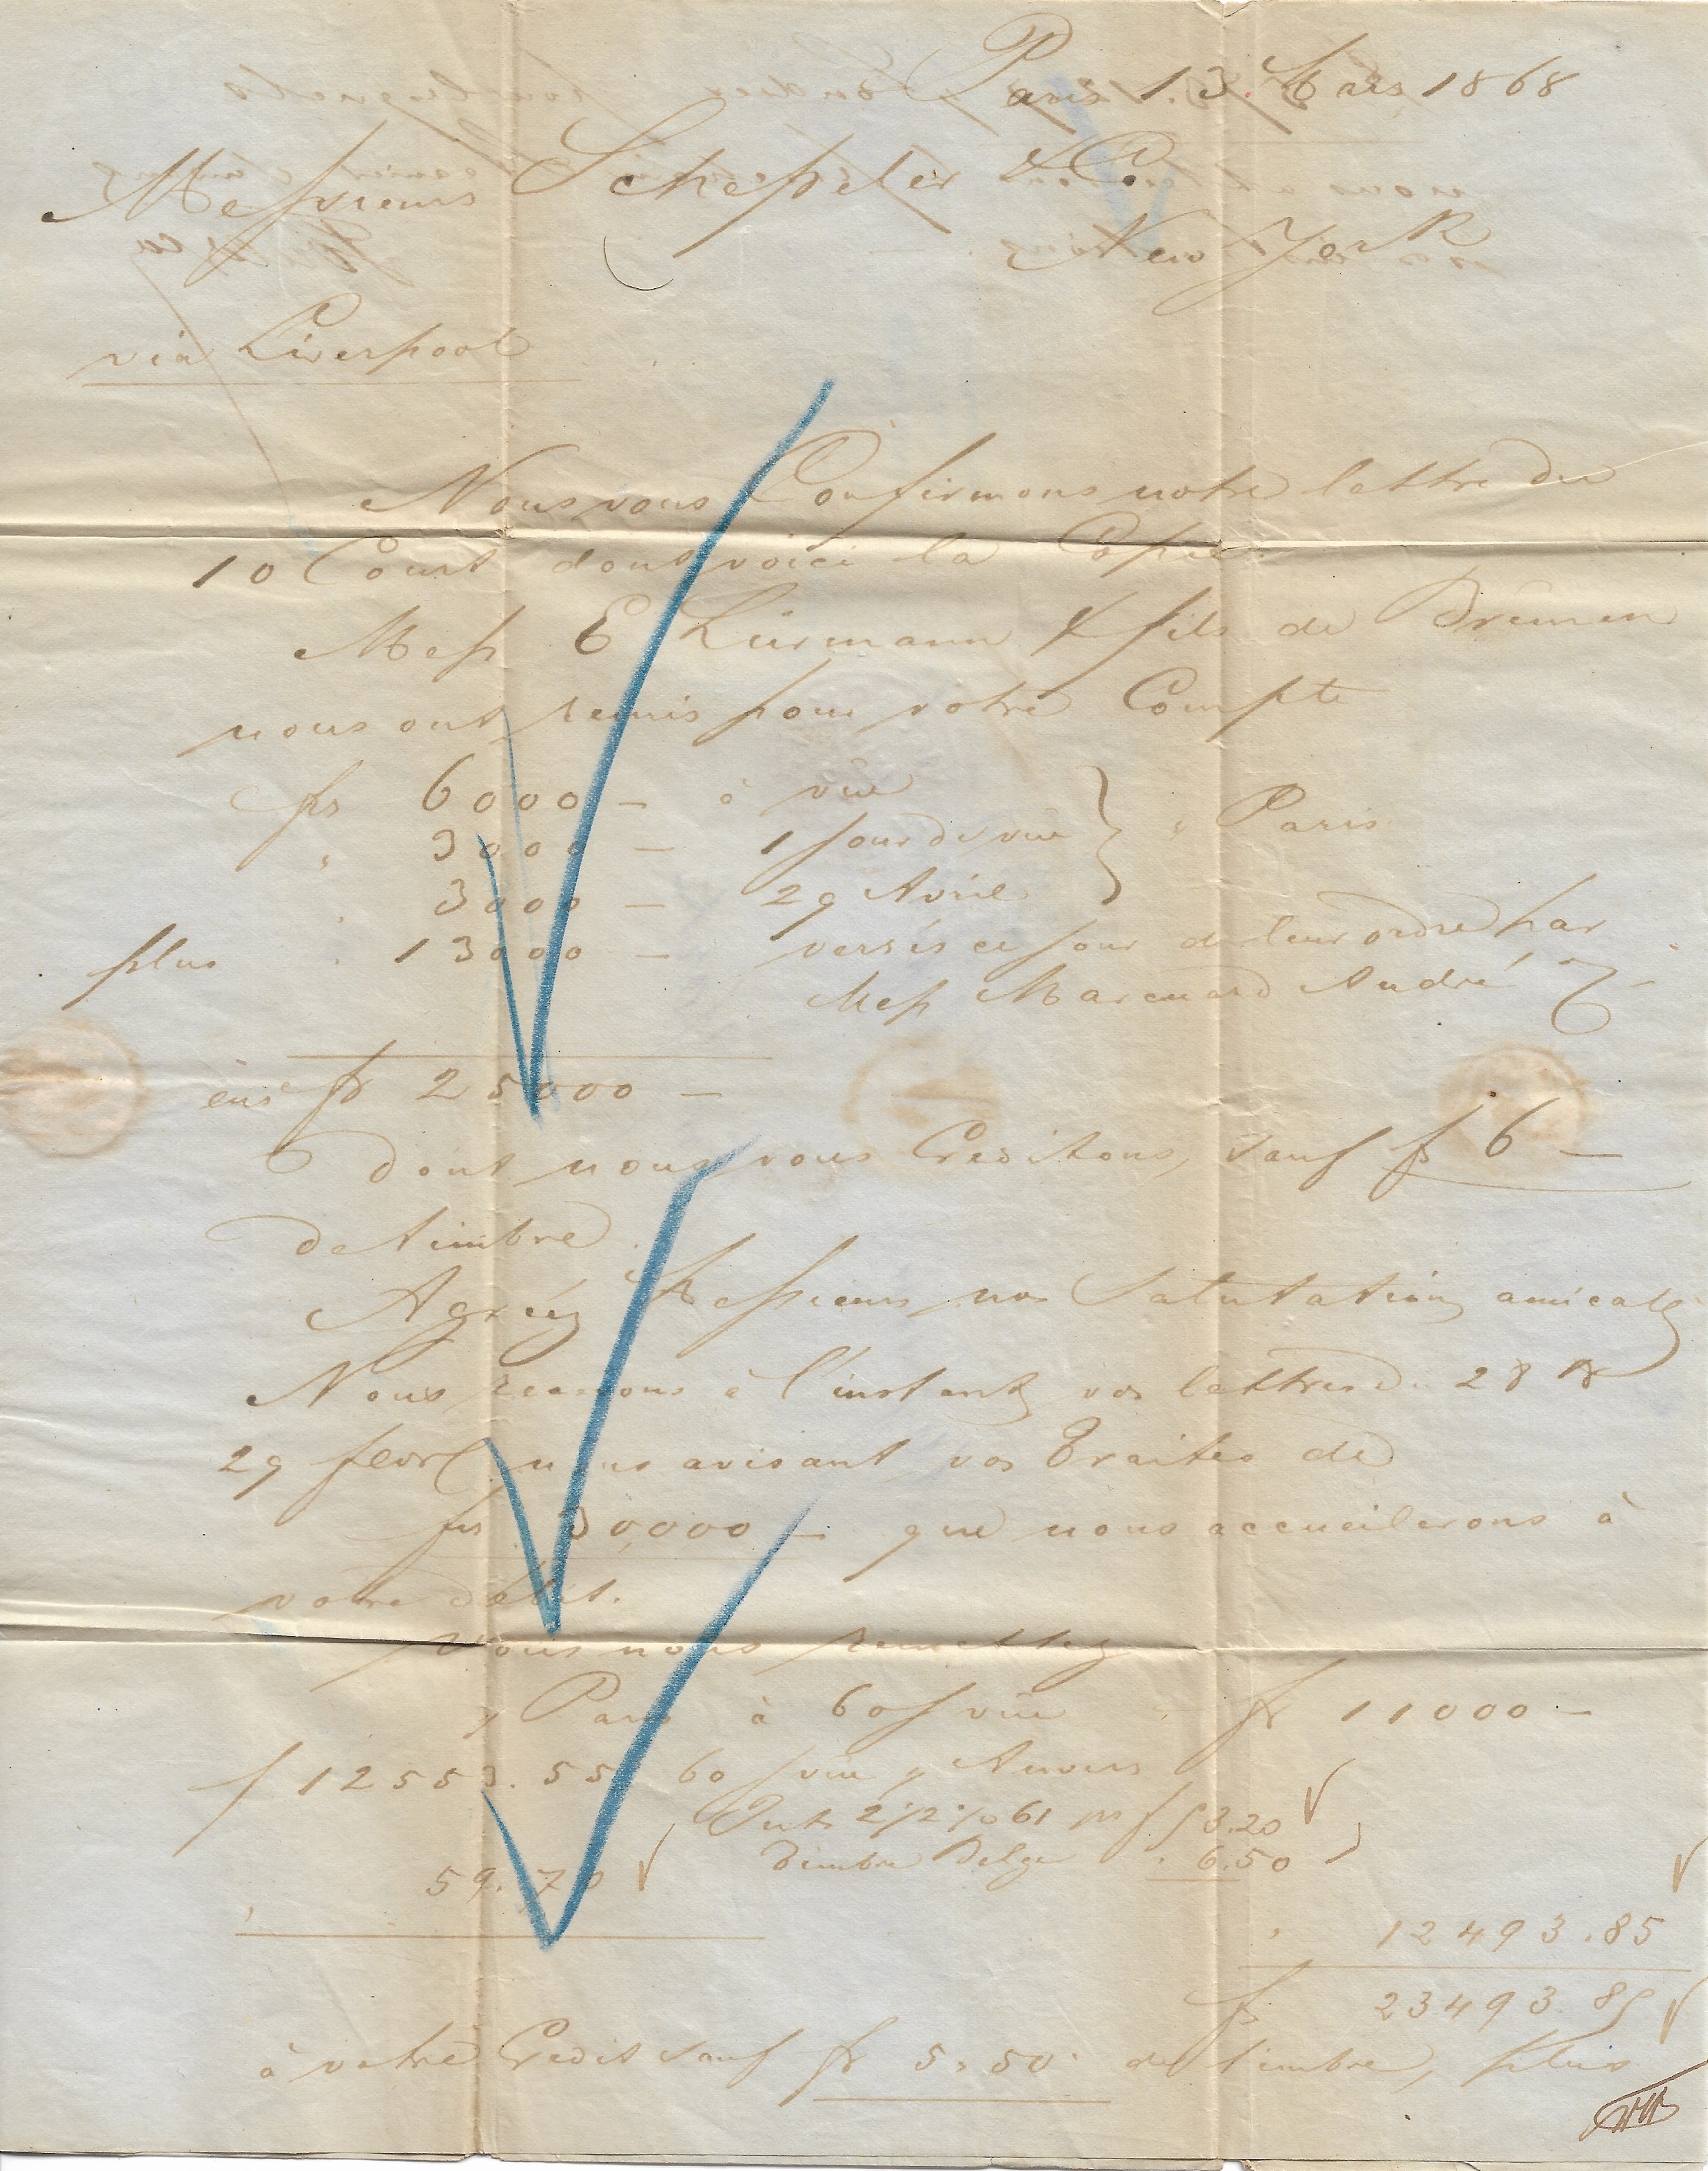 Paris 13. Mars 1868
Messieurs Schepeler & Co.
New York
via Liverpool
Nous vous Confirmons notre lettre du
10 Court dont voici la Copie.
Mess E Lürmann & fils de Brêmen
nous ont remis pour votre Compte
frs 6000 — à vue
" 3000 — 1 jour de vue } s Paris
" 3000 — 29 Avril
plus " 13000 — versés ce jour de leur ordre par
Mess Marcuard André &
ens fr 25000 —
dont nous vous Creditons, sauf fr 6 —
de timbre.
Agréez Messieurs nos Salutations amicales
Nous recevons à l'instant vos lettres du 28 &
29 fevr nous avisant vos Traites de
frs 30,000 — que nous accueilerons à
votre débit.
Vous nous remettez
s/ Paris à 60 j vue fr 11000 —
f 12553.55 60 j vue s/ Anvers
Ints 2 1/2 % 61 jrs f 53.20
Timbre Belge " 6.50
" 59.70
" 12493.85
fr 23493.85
à votre Credit sauf fr 5.50 de timbre, plus